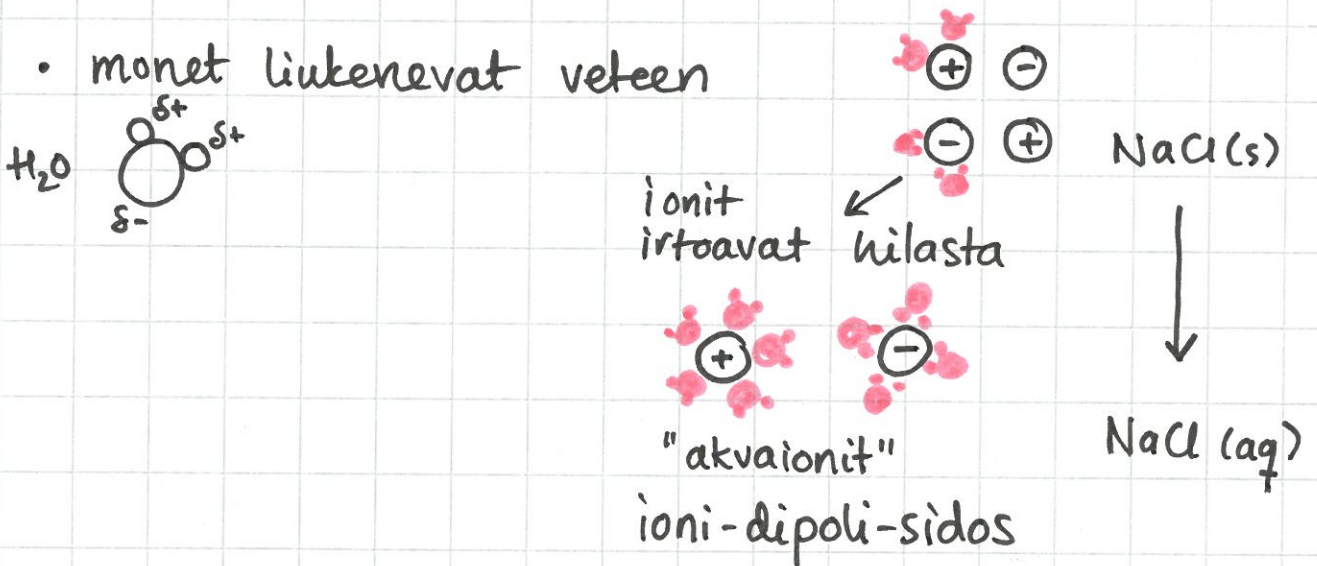 • monet liukenevat veteen
H₂O
δ+
δ+
δ-
+ -
- +
NaCl(s)
ionit
irtoavat hilasta
+ -
"akvaionit"
NaCl (aq)
ioni-dipoli-sidos